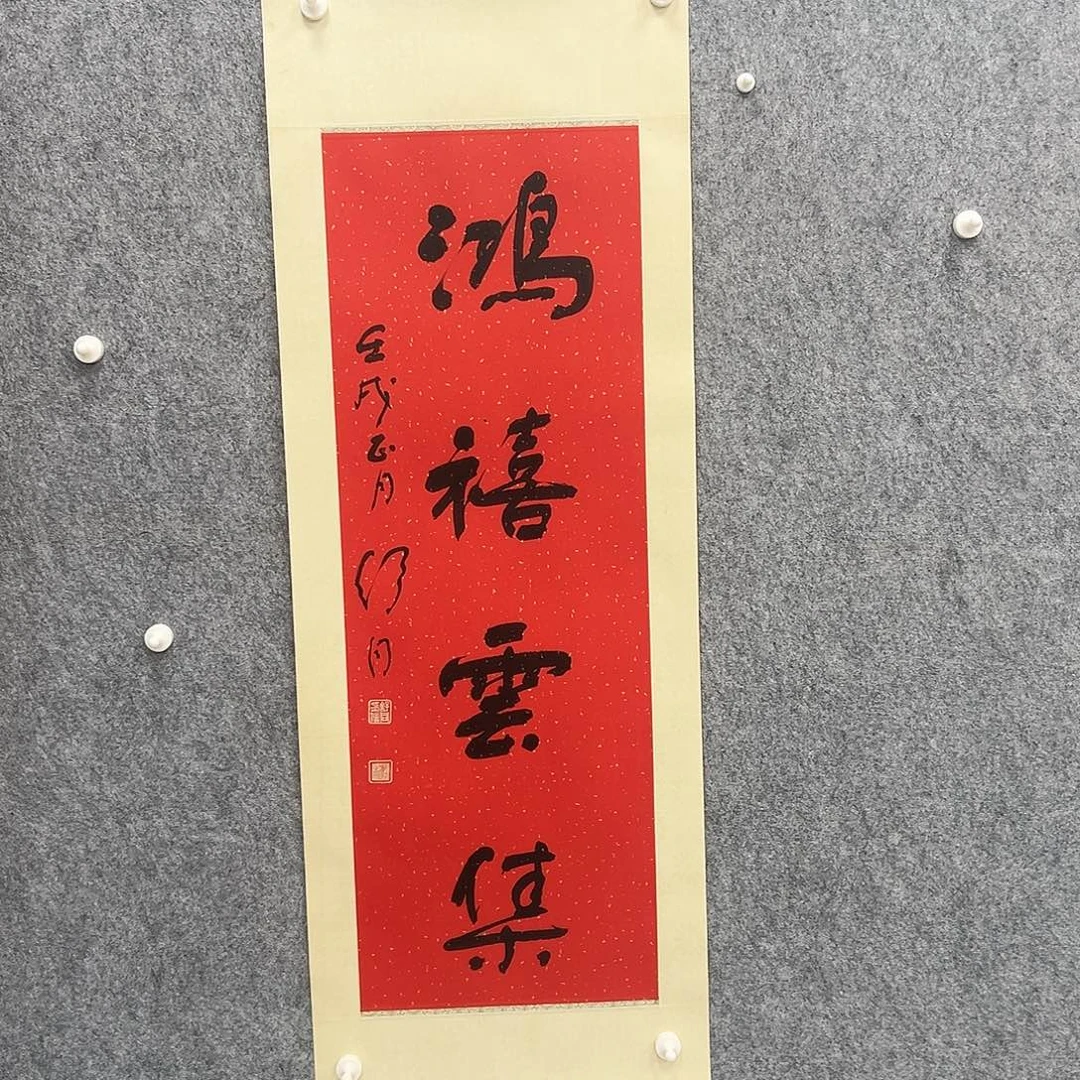 鴻禧雲集
壬戌正月
舒同